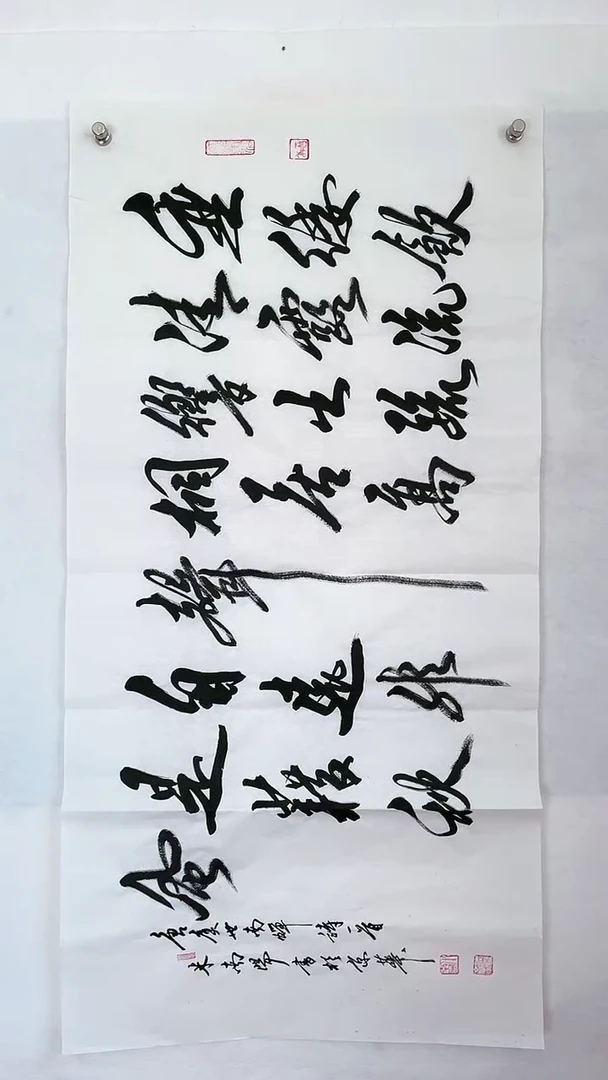 垂緌飲
清露流
響出疏
桐居高
聲
自遠非
是藉秋
風
唐虞世南蟬詩一首
南陽書於京華